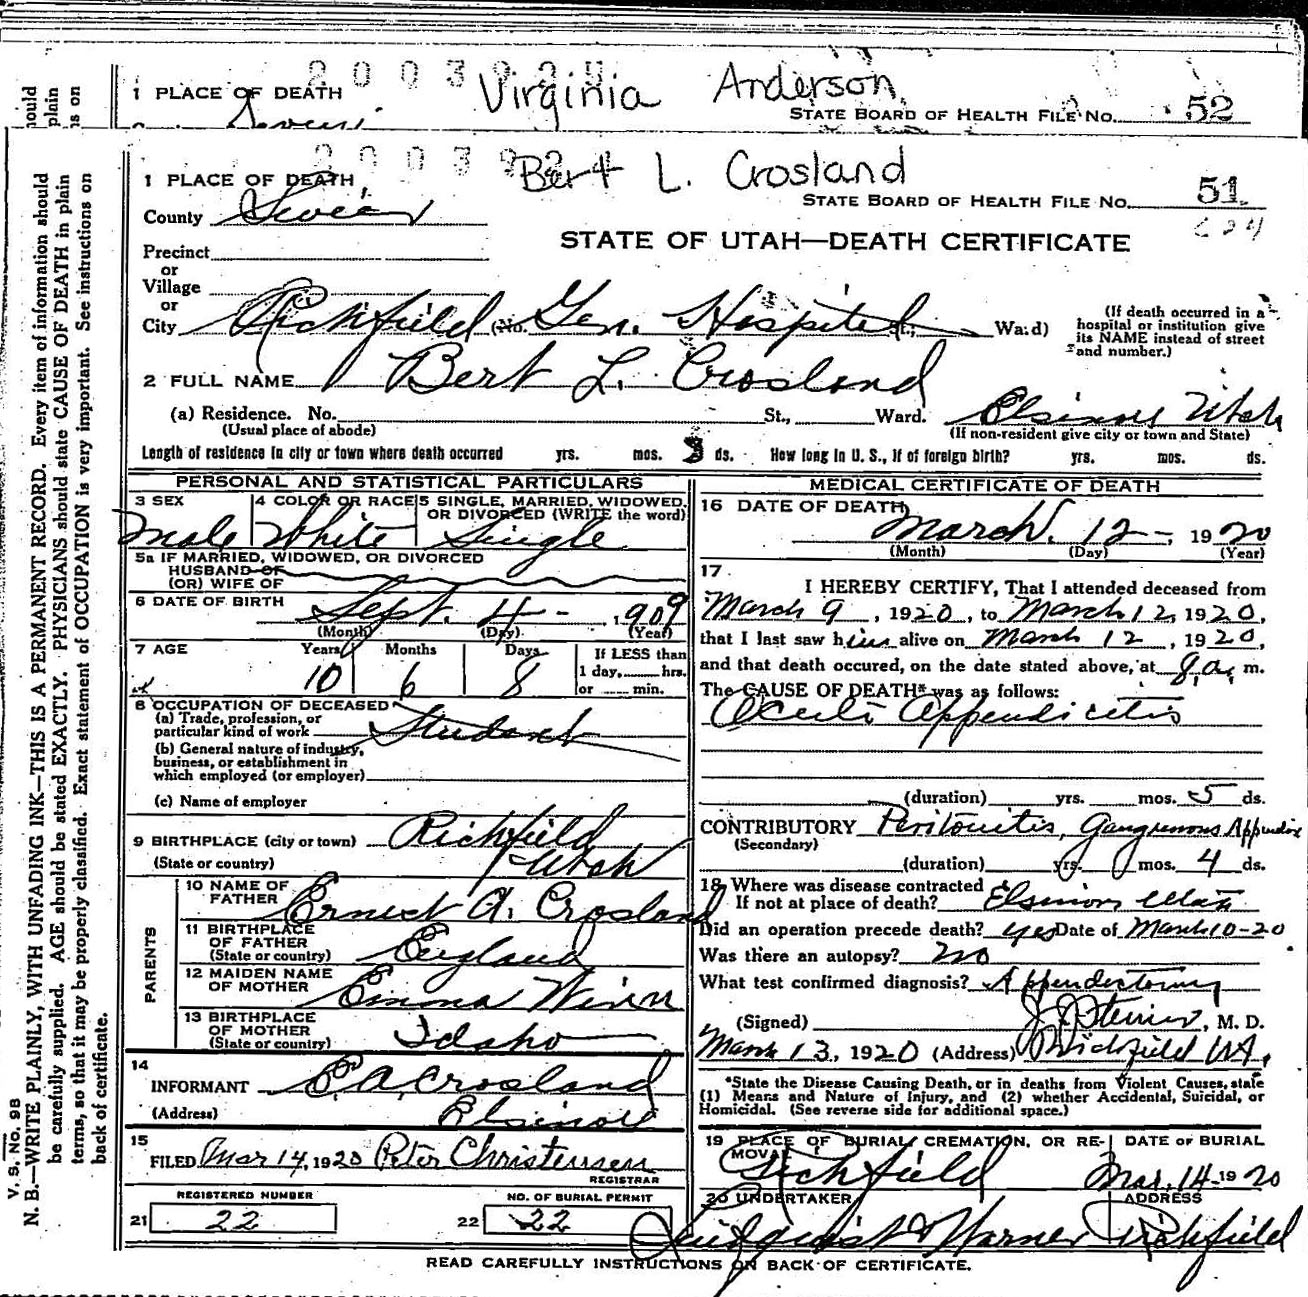 ould
plain
ns on
2003925
1 PLACE OF DEATH
Virginia Anderson
STATE BOARD OF HEALTH FILE NO. 52
Sevier
200392
Bert L. Crosland
1 PLACE OF DEATH
STATE BOARD OF HEALTH FILE NO. 51
County Sevier
STATE OF UTAH—DEATH CERTIFICATE
Precinct
or
Village
or
City Richfield (No. Gen. Hospital St., Ward)
(If death occurred in a
hospital or institution give
its NAME instead of street
and number.)
2 FULL NAME Bert L. Crosland
(a) Residence. No. St., Ward. Elsinore Utah
(Usual place of abode)
(If non-resident give city or town and State)
Length of residence in city or town where death occurred yrs. mos. 3 ds. How long in U. S., if of foreign birth? yrs. mos. ds.
PERSONAL AND STATISTICAL PARTICULARS
3 SEX
Male
4 COLOR OR RACE
White
5 SINGLE, MARRIED, WIDOWED,
OR DIVORCED (WRITE the word)
Single
5a IF MARRIED, WIDOWED, OR DIVORCED
HUSBAND OF
(OR) WIFE OF
6 DATE OF BIRTH Sept. 4 - 1909
(Month) (Day) (Year)
7 AGE Years Months Days If LESS than
1 day, hrs.
or min.
10 6 8
8 OCCUPATION OF DECEASED
(a) Trade, profession, or
particular kind of work Student
(b) General nature of industry,
business, or establishment in
which employed (or employer)
(c) Name of employer
9 BIRTHPLACE (city or town) Richfield
(State or country) Utah
PARENTS
10 NAME OF
FATHER Ernest A. Crosland
11 BIRTHPLACE
OF FATHER
(State or country) England
12 MAIDEN NAME
OF MOTHER Emma Winn
13 BIRTHPLACE
OF MOTHER
(State or country) Idaho
14
INFORMANT E. A. Crosland
(Address) Elsinore
15
FILED Mar 14, 1920 Peter Christensen
REGISTRAR
REGISTERED NUMBER
21 22
NO. OF BURIAL PERMIT
22 22
MEDICAL CERTIFICATE OF DEATH
16 DATE OF DEATH
March. 12-, 1920
(Month) (Day) (Year)
17
I HEREBY CERTIFY, That I attended deceased from
March 9, 1920, to March 12, 1920,
that I last saw him alive on March 12, 1920,
and that death occured, on the date stated above, at 8 a. m.
The CAUSE OF DEATH* was as follows:
Acute Appendicitis
(duration) yrs. mos. 5 ds.
CONTRIBUTORY Peritonitis, Gangrenous Appendix
(Secondary)
(duration) yrs. mos. 4 ds.
18 Where was disease contracted
If not at place of death? Elsinore Utah
Did an operation precede death? yes Date of March 10-20
Was there an autopsy? no
What test confirmed diagnosis? Appendectomy
(Signed) J. J. Steiner, M. D.
March 13, 1920 (Address) Richfield Ut.
*State the Disease Causing Death, or in deaths from Violent Causes, state
(1) Means and Nature of Injury, and (2) whether Accidental, Suicidal, or
Homicidal. (See reverse side for additional space.)
19 PLACE OF BURIAL, CREMATION, OR RE-
MOVAL
Richfield
DATE OF BURIAL
Mar. 14- 1920
20 UNDERTAKER
ADDRESS
Warner Richfield
READ CAREFULLY INSTRUCTIONS ON BACK OF CERTIFICATE.
V. S. No. 98
N. B.—WRITE PLAINLY, WITH UNFADING INK—THIS IS A PERMANENT RECORD. Every item of information should
be carefully supplied. AGE should be stated EXACTLY. PHYSICIANS should state CAUSE OF DEATH in plain
terms, so that it may be properly classified. Exact statement of OCCUPATION is very important. See instructions on
back of certificate.